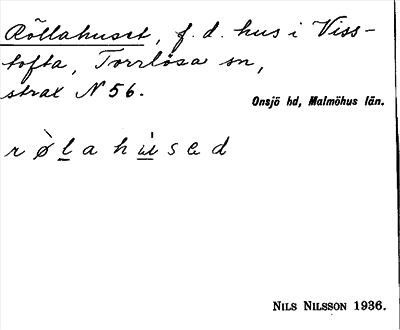 Röllahuset, f.d. hus i Viss-
tofta, Torrlösa sn,
strax N 56.
Onsjö hd, Malmöhus län.
rø̀lahused
NILS NILSSON 1936.